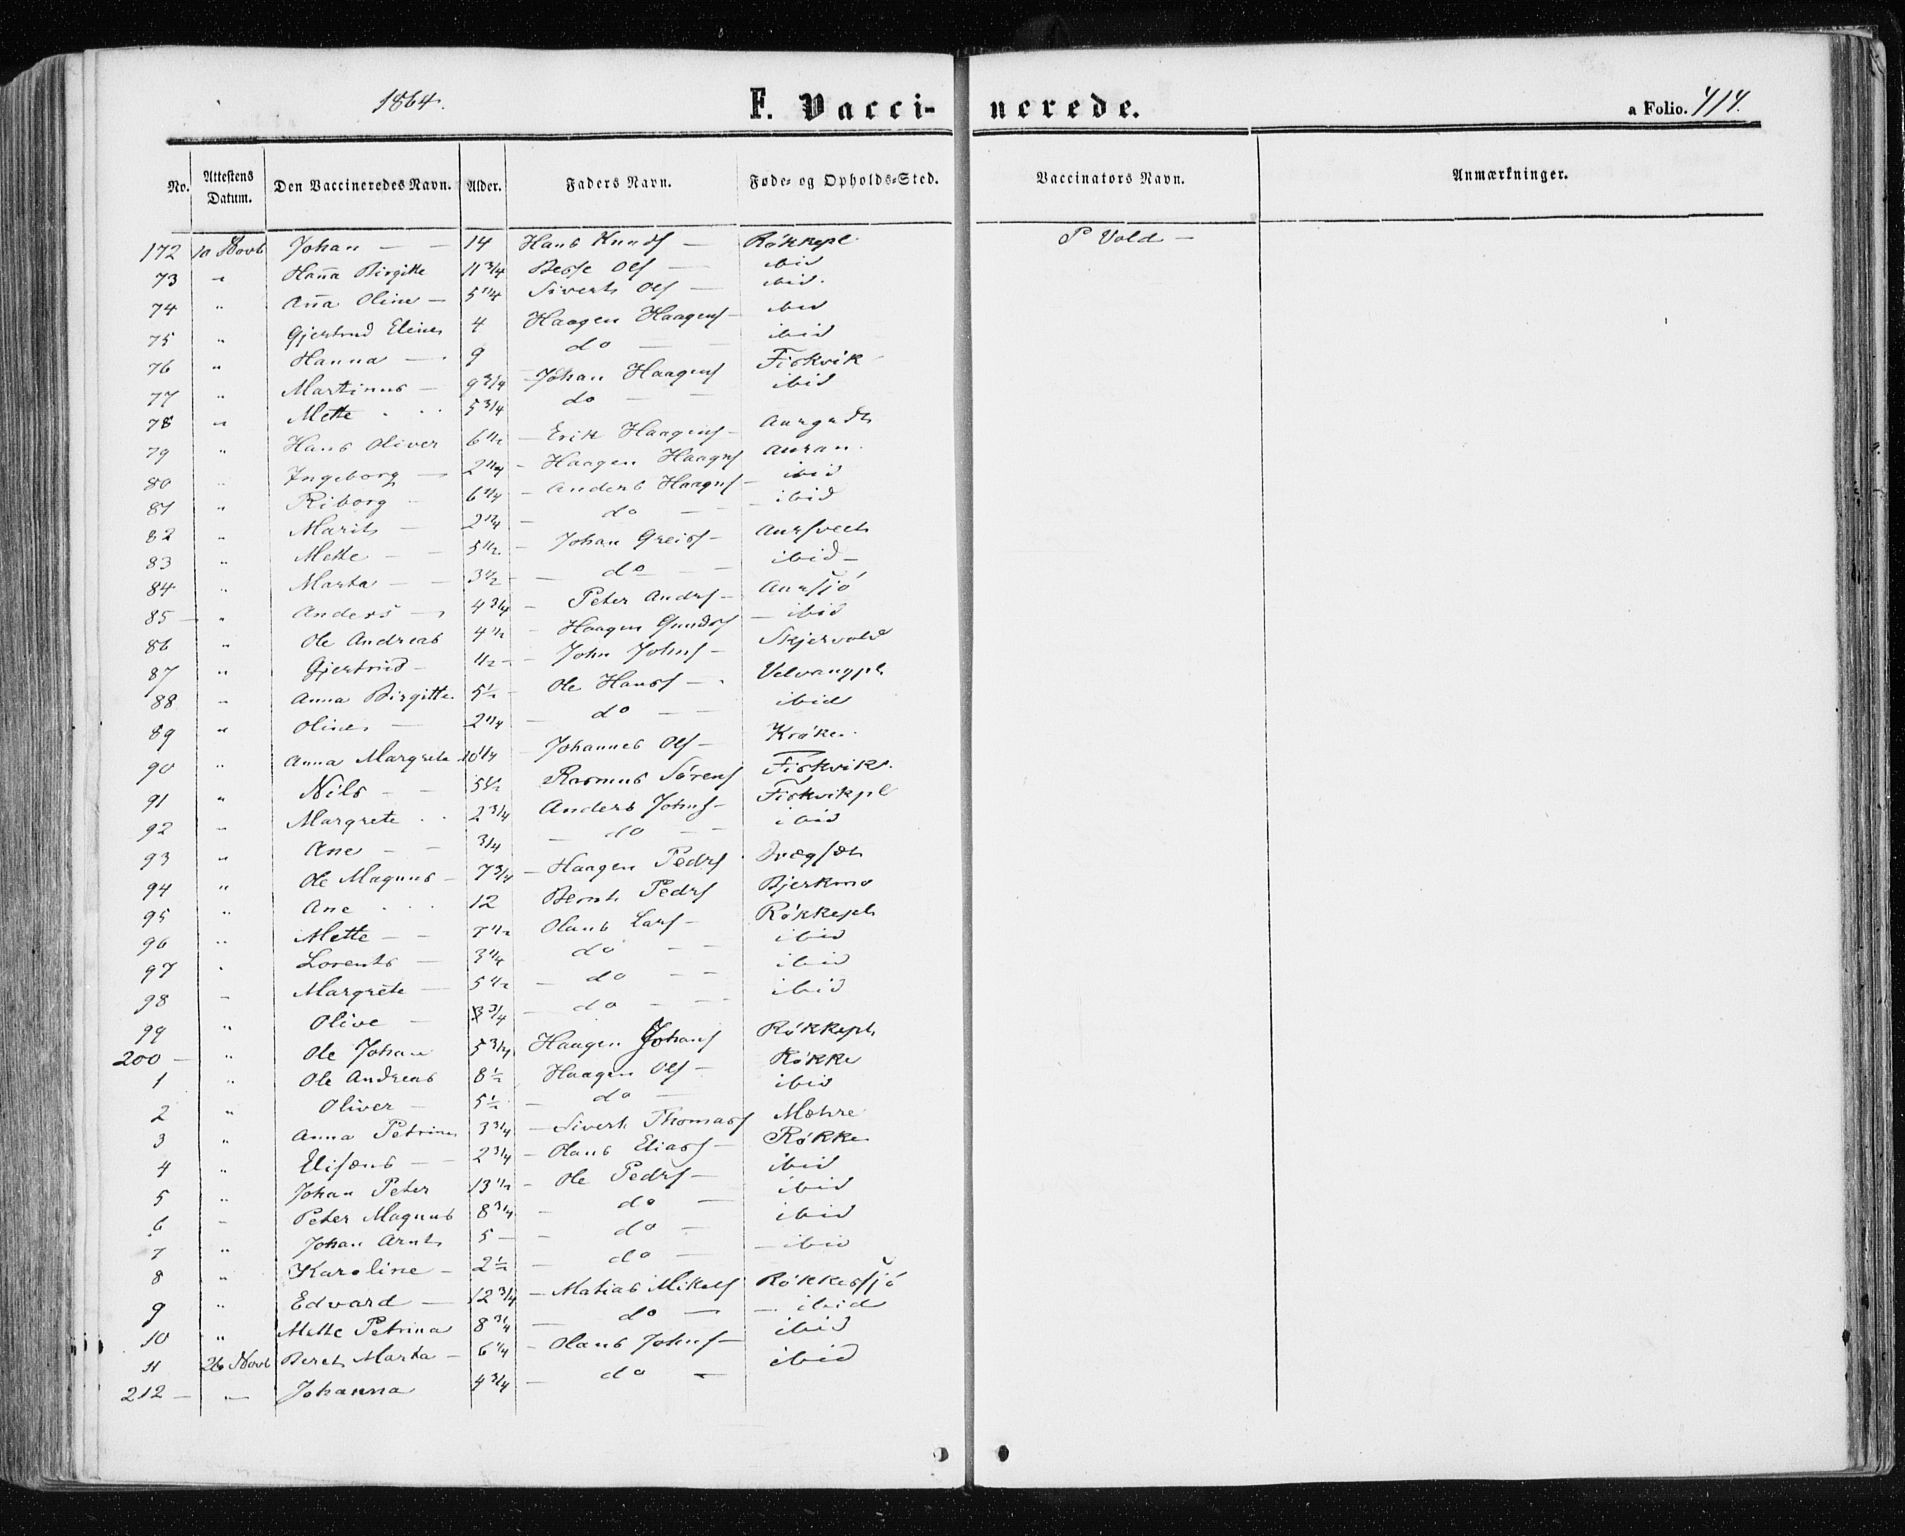 1864.
F. Vaccinerede.
a Folio. 414.
No. Attestens Datum. Den Vaccineredes Navn. Alder. Faders Navn. Føde- og Opholds-Sted. Vaccinators Navn. Anmærkninger.
172 10 Novb Johan — — 14 Hans Knuds — Røkkepl. P Vold —
73 " Hanna Birgitte 11 3/4 Ols — ibid
74 " Anna Oline — 5 1/4 Siverts Ols — ibid.
75 " Gjertrud Eline 4 Haagen Haagens — ibid
76 " Hanna — 9 do — — ibid
77 " Martinus — 9 3/4 Johan Haagens Fiskvik
78 " Mette . . . 5 3/4 do — — ibid
79 " Hans Oliver 6 1/2 — Erik Haagens —
80 " Ingeborg — 2 1/4 — Haagen Haagns Auran.
81 " Riborg 6 1/4 — Anders Haagns — ibid
82 " Marit — 2 1/4 — do — — ibid
83 " Mette — — 5 1/2 — Johan Greis — Aursvet
84 " Marta — — 3 1/2 — do — — ibid —
85 — " Anders — 4 3/4 — Peter Andrs — Aursjø
86 " Ole Andreas 4 1/2 — Haagen — ibid
87 " Gjertrud — 1/2 — John Johns — Skjervold
88 " Anna Birgitte 5 1/2 — Ole Hans — Velvangpl
89 " Oline — 2 1/4 — do — — ibid
90 " Anna Margreta 10 1/4 — Johannes Ols — Krøke.
91 " Nils — — 5 1/2 Rasmus Sørens Fiskvik.
92 " Margrete . . 2 3/4 Anders Johns — Fiskvikpl
93 " Ane — — 3/4 — do — — ibid
94 " Ole Magnus — 7 3/4 — Haagen Pedrs
95 " Ane . . . 12 Bernt Pedrs Bjerkmo
96 " Mette — — 7 1/2 Olaus Lars — Røkkepl
97 " Lorents — 3 1/4 do — — ibid
98 — Margrete — 5 1/2 — do — — ibid
99 " Olive — 3 3/4 — do — — ibid
200 — " Ole Johan 5 3/4 Haagen Johans Røkkepl
1 " Ole Andreas 8 1/2 Haagen Ols — Røkke
2 " Oliver — 5 1/2 — do — ibid
3 " Anna Petrine 3 3/4 — Sivert Thomass Mæhre
4 " Elisæus — — 2 3/4 — Olaus Elias — Røkke
5 " Johan Peter 13 1/2 — Ole Pedrs — ibid
6 — Peter Magnus 8 3/4 — do — ibid
7 " Johan Arnt 5 — — do — ibid
8 " Karoline — 2 1/2 — do — — ibid
9 " Edvard — 12 3/4 — Matias Mikals Røkkessjø
10 " Mette Petrina 8 3/4 — do — — ibid
11 26 Novb Beret Marta — 6 1/4 — Olaus Johns — ibid
212 — " Johanna 4 3/4 — do — ibid